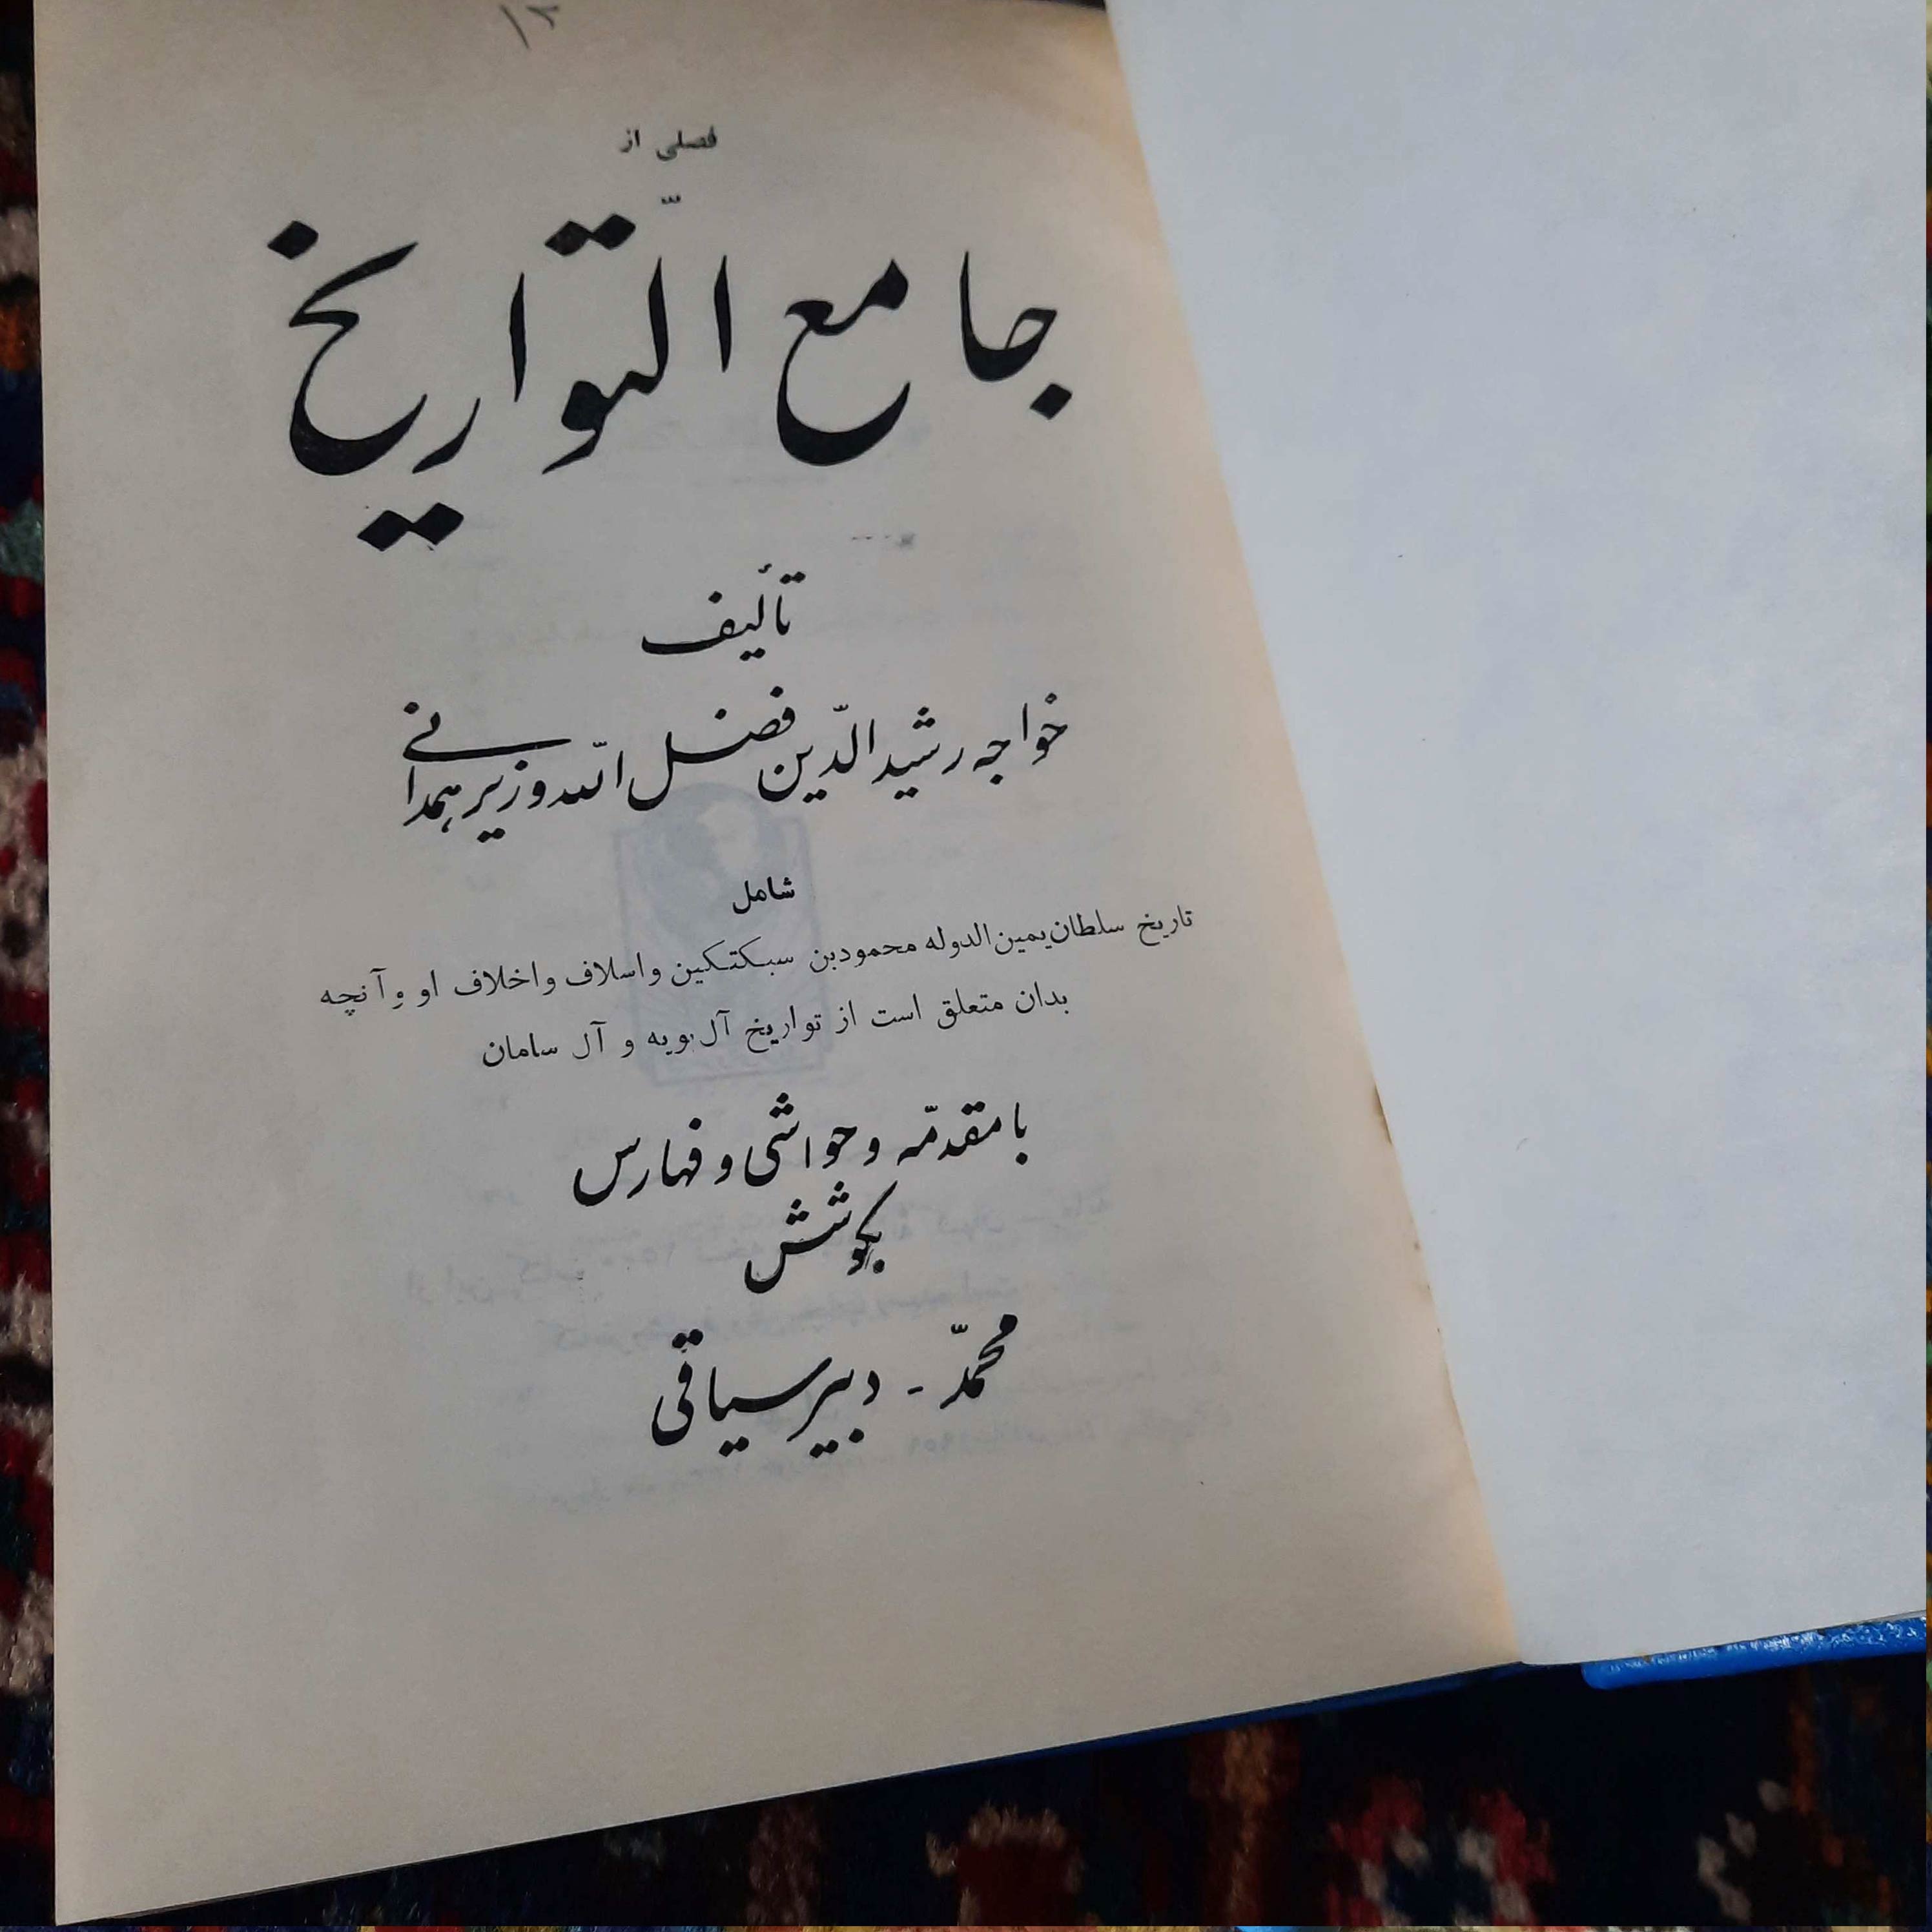 فصلی از
جامع التّواریخ
تألیف
خواجه رشیدالدّین فضل اللّه وزیر همدانی
شامل
تاریخ سلطان یمین الدوله محمودبن سبکتکین و اسلاف و اخلاف او و آنچه
بدان متعلق است از تواریخ آل بویه و آل سامان
با مقدمّه و حواشی و فهارس
بکوشش
محمّد - دبیر سیاقی